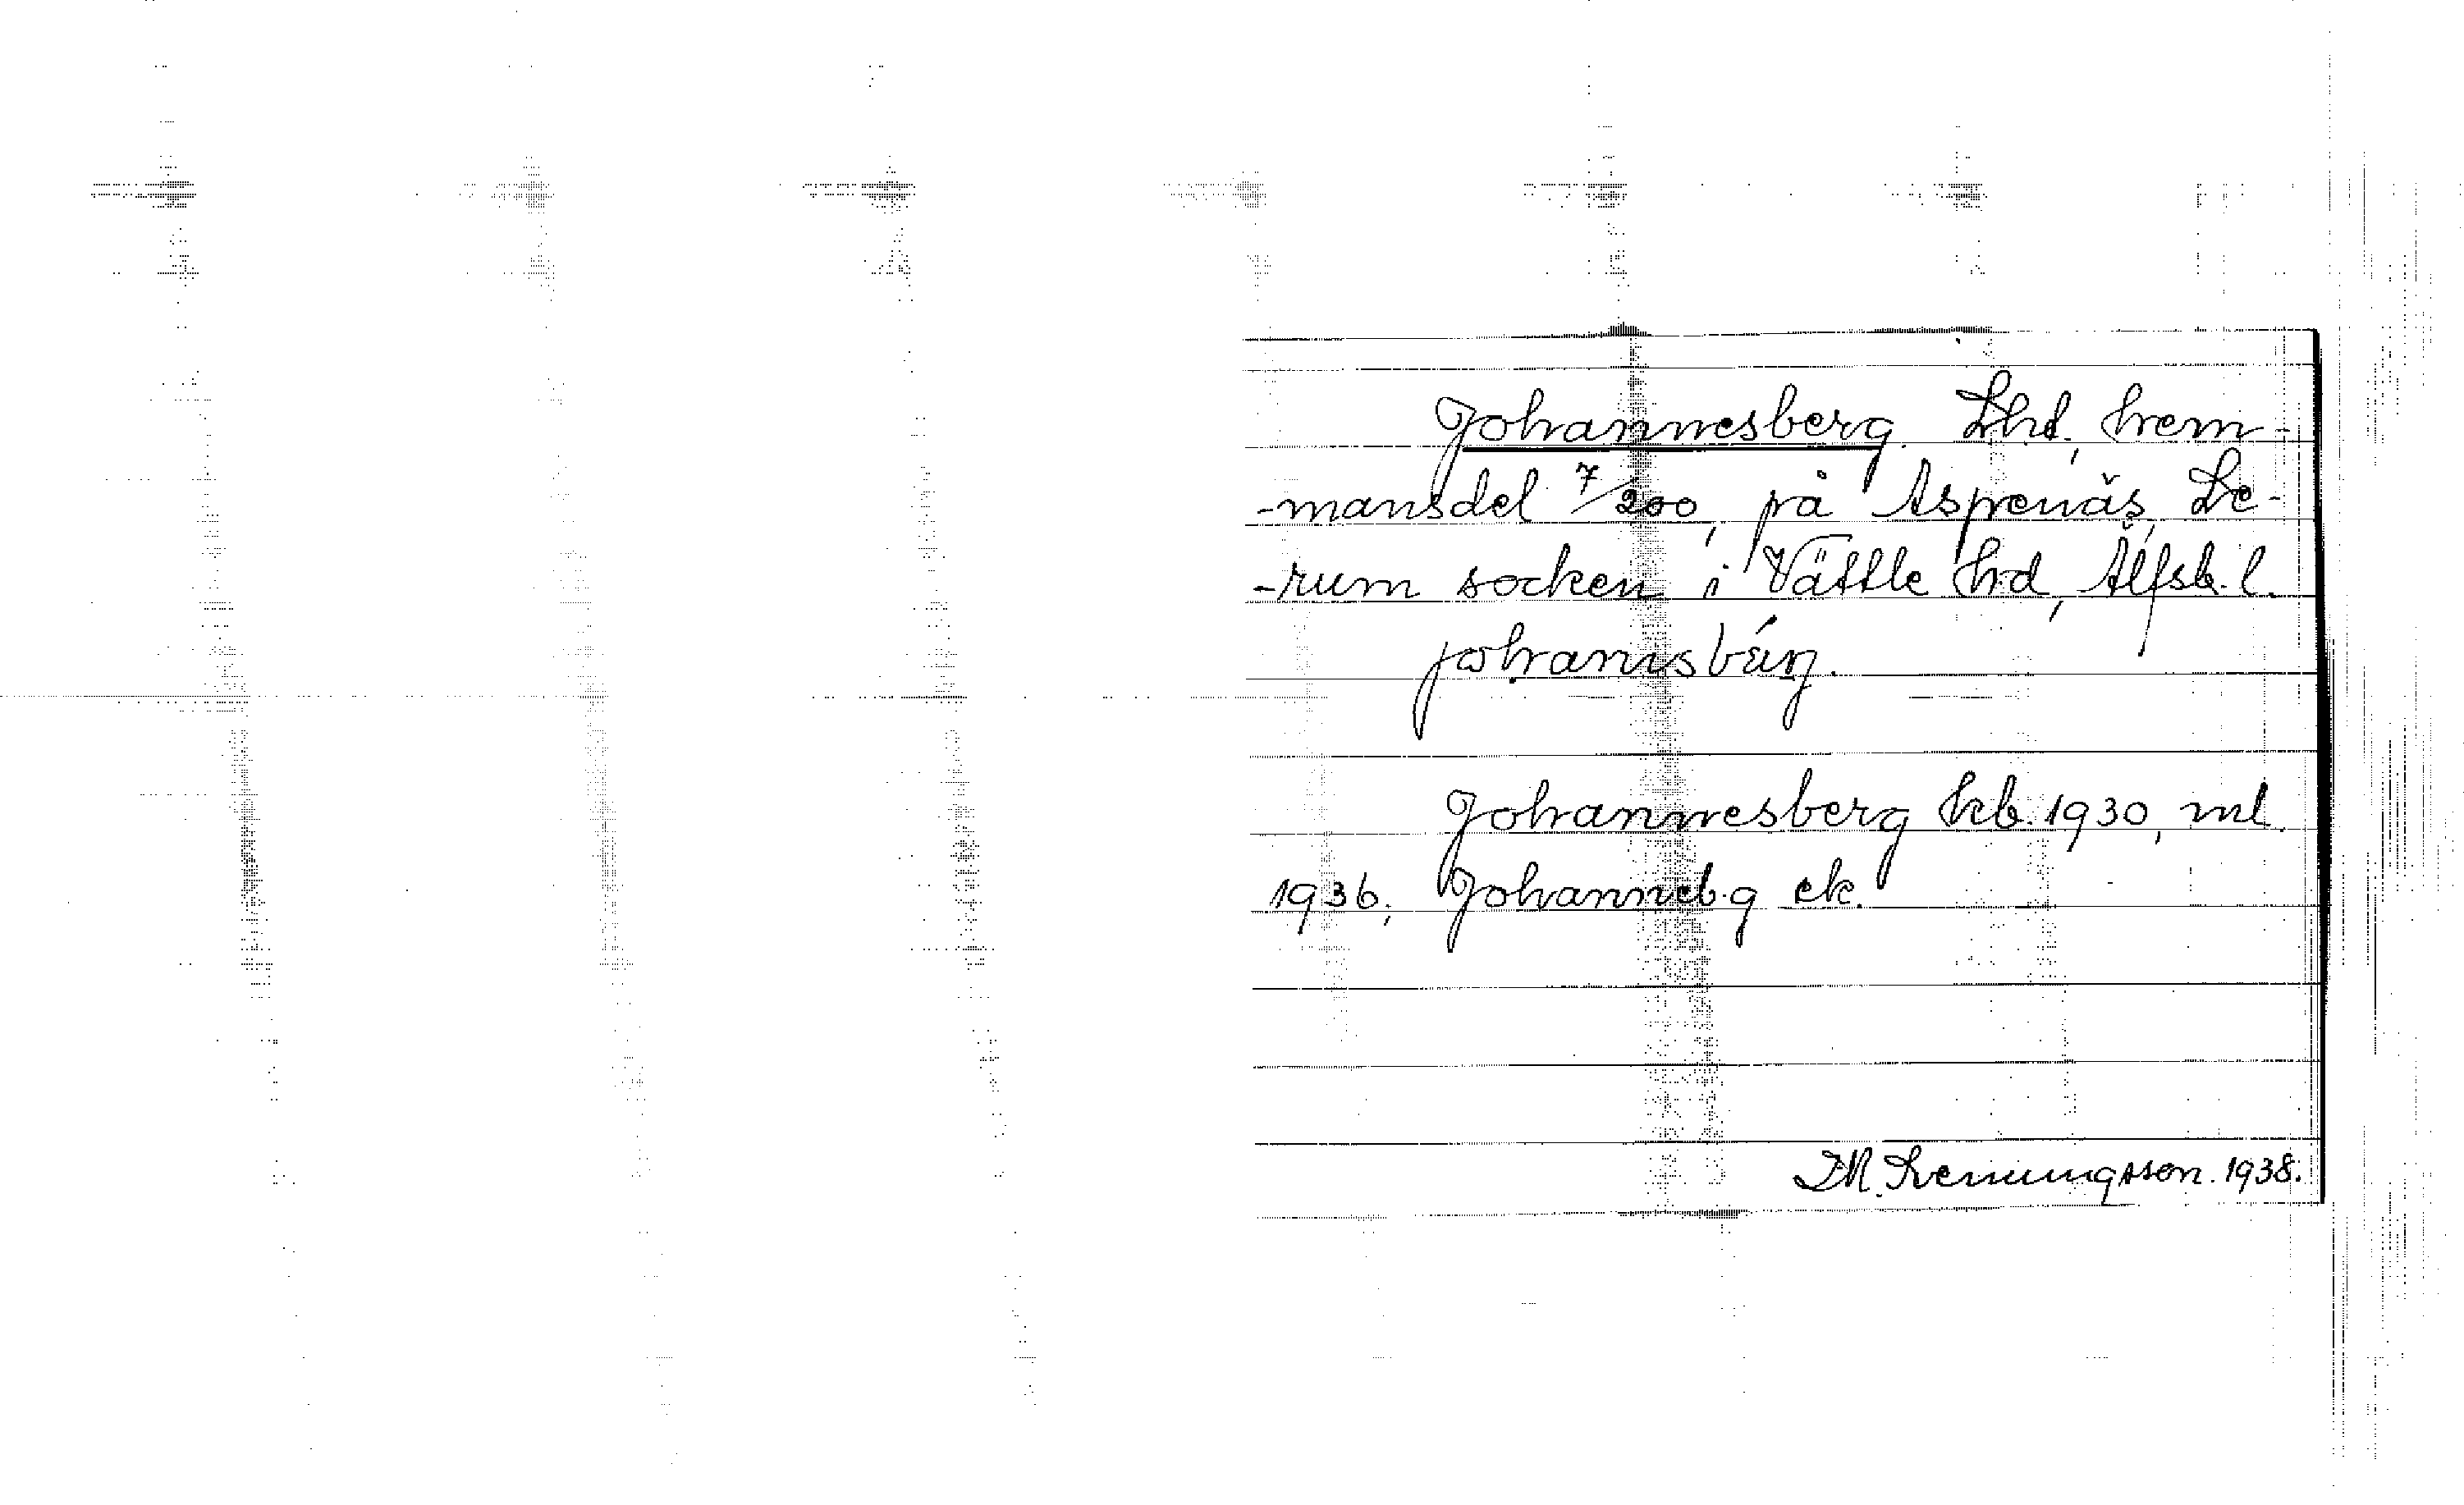 Johannesberg. Lhd, hem-
-mansdel 7/200, på Aspenäs, Le-
-rum socken i Vättle hd, Älfsb. l.
johanisbärj.
Johannesberg kb. 1930, ml.
1936, Johanneb.g ek.
1938.